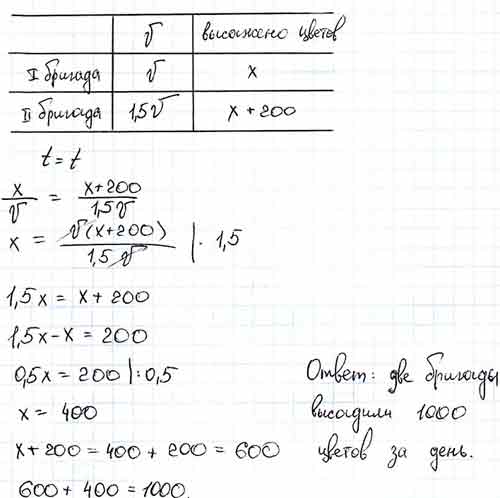 v высажено цветов
I бригада v x
II бригада 1,5v x + 200
t = t
x/v = x+200/1,5v
x = v(x+200)/1,5v | · 1,5
1,5x = x + 200
1,5x - x = 200
0,5x = 200 | : 0,5
x = 400
x + 200 = 400 + 200 = 600
600 + 400 = 1000.
Ответ: две бригады
высадили 1000
цветов за день.